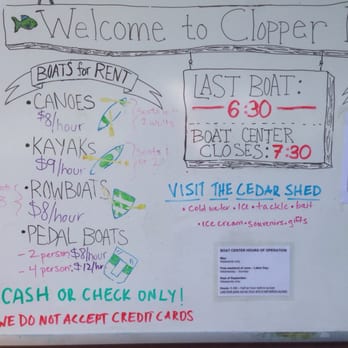 Welcome to Clopper
BOATS for RENT
• CANOES
$8/hour
• KAYAKS
$9/hour
• ROWBOATS
$8/hour
• PEDAL BOATS
- 2 person: $8/hour
- 4 person: $12/hr
CASH OR CHECK ONLY!
WE DO NOT ACCEPT CREDIT CARDS
LAST BOAT:
6:30
BOAT CENTER
CLOSES: 7:30
VISIT THE CEDAR SHED
• cold water • ice • tackle • bait
• ice cream • souvenirs • gifts
BOAT CENTER HOURS OF OPERATION
May